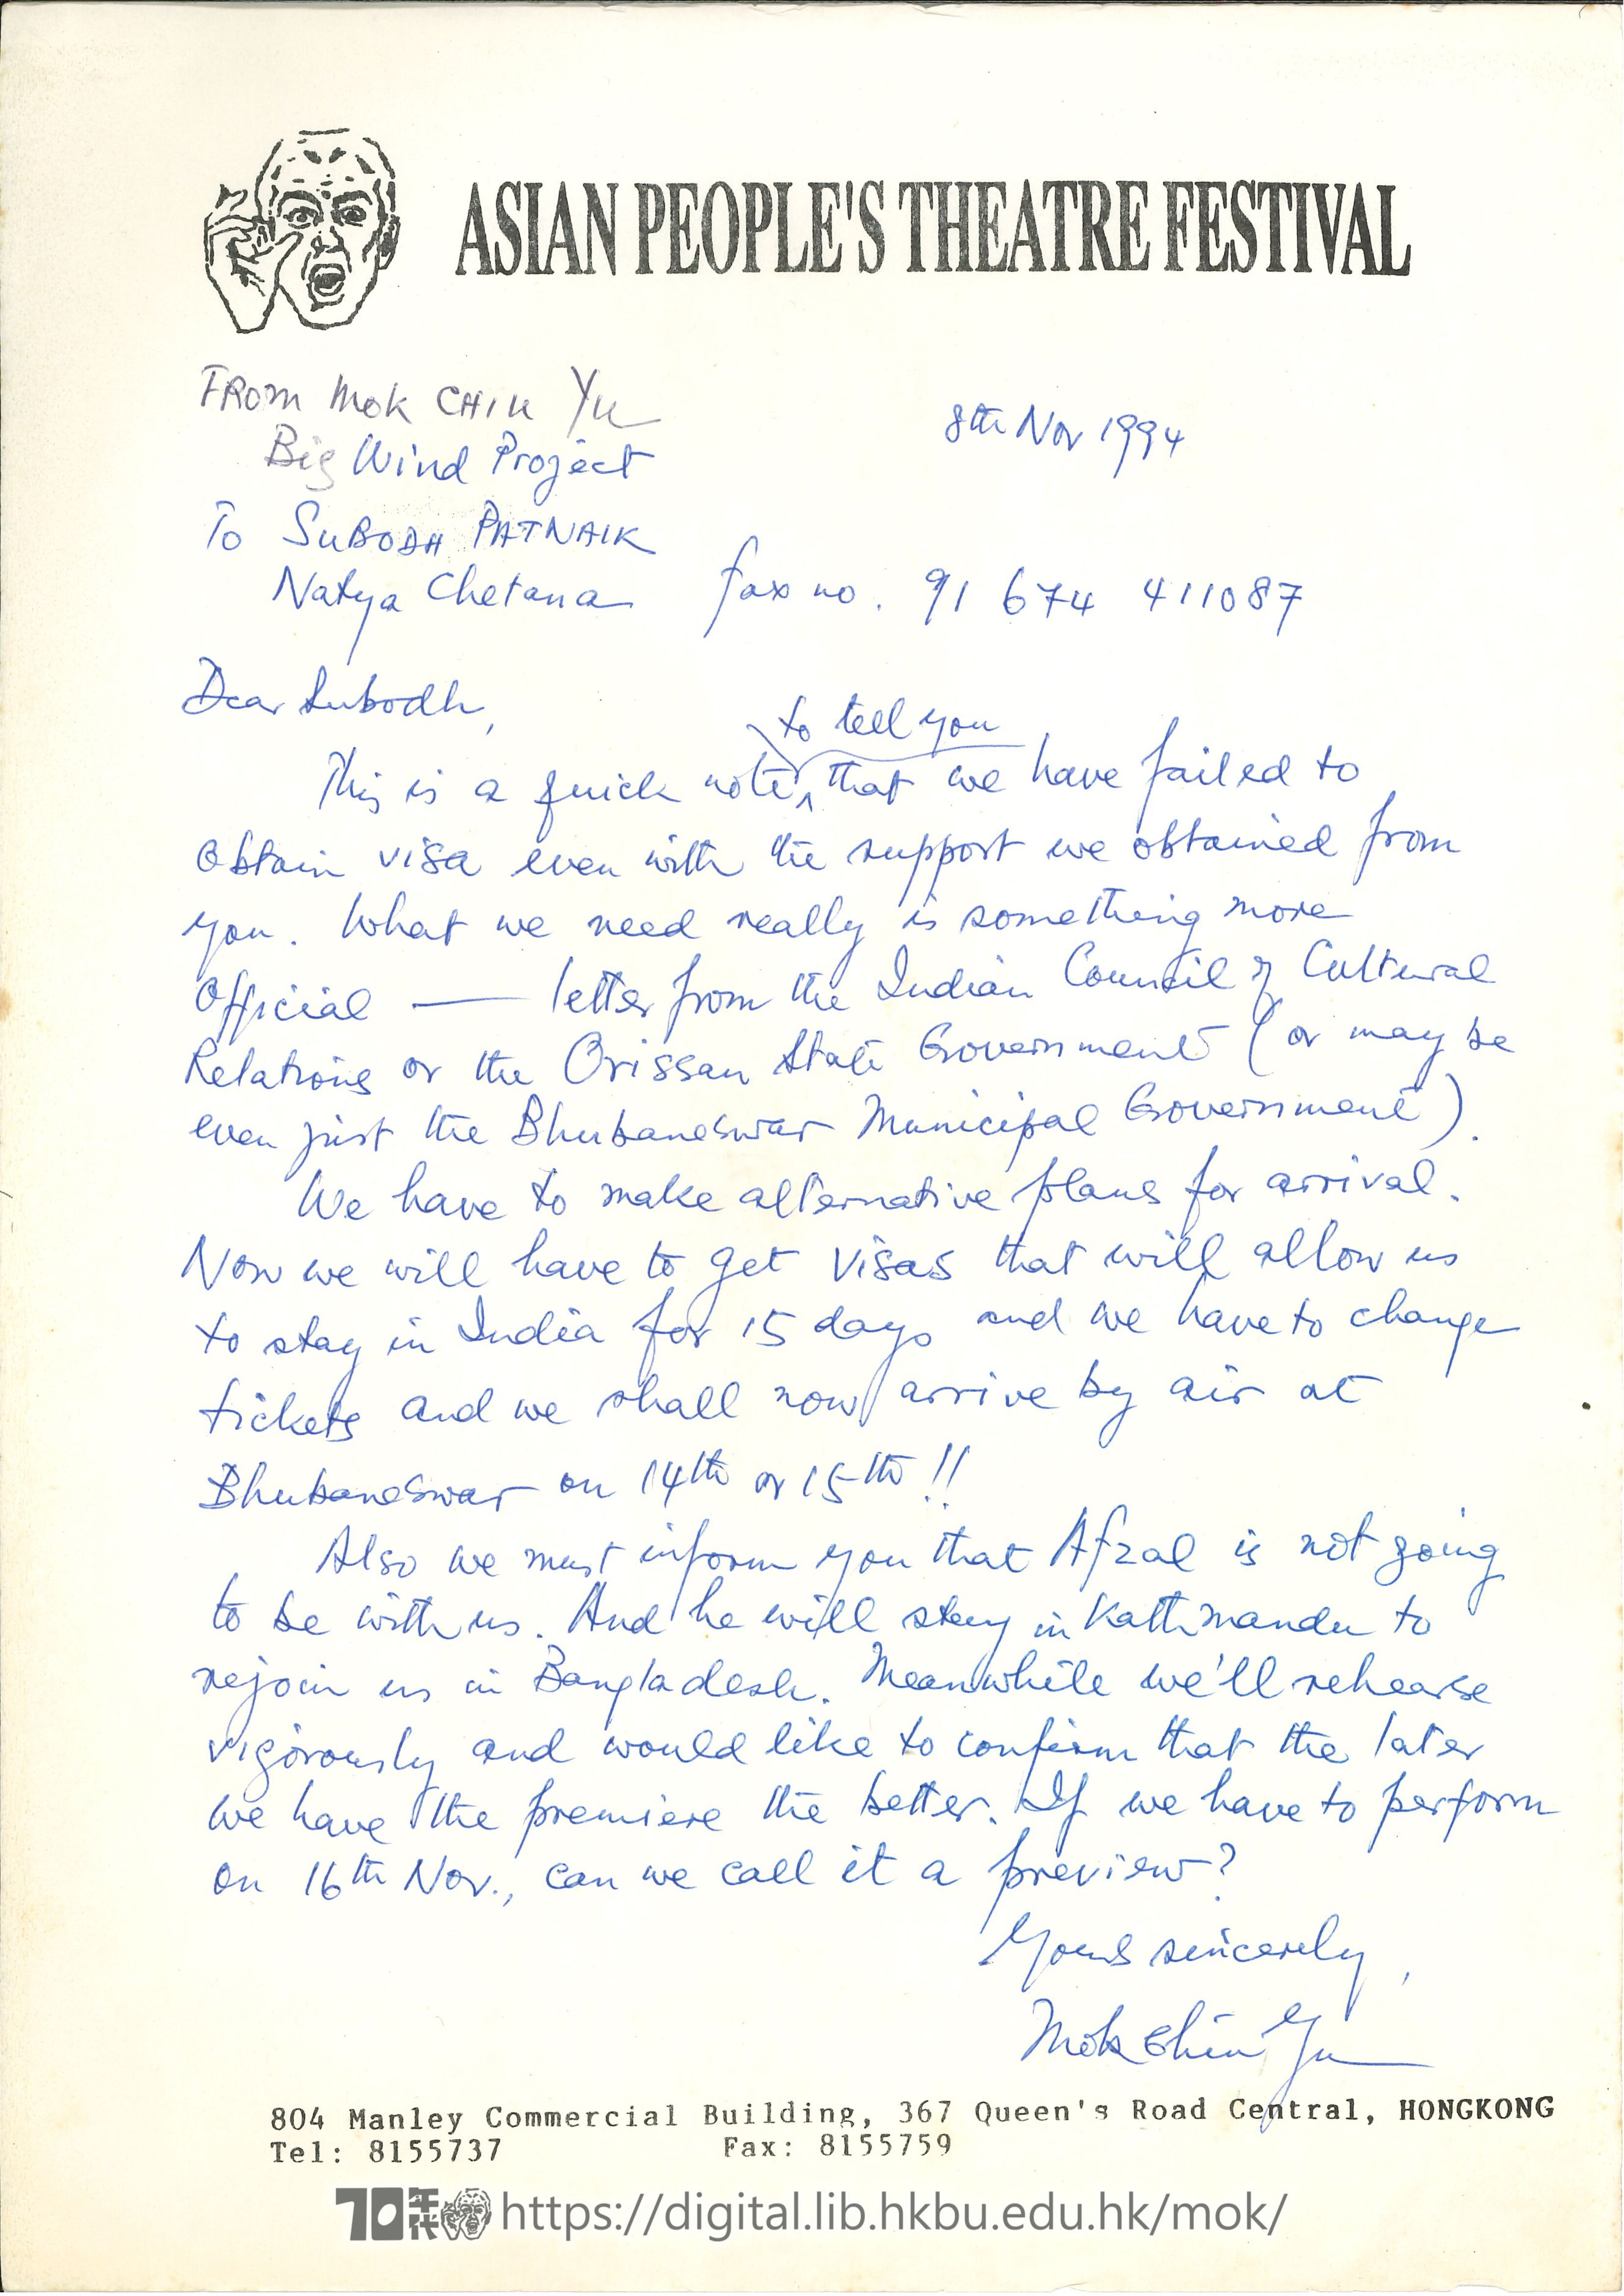 ASIAN PEOPLE'S THEATRE FESTIVAL
FROM MOK CHIU YU
8th Nov 1994
Big Wind Project
To SUBODH PATNAIK
Natya Chetana fax no. 91 674 411087
Dear Subodh,
to tell you
This is a quick note that we have failed to
obtain visa even with the support we obtained from
you. What we need really is something more
official — letter from the Indian Council of Cultural
Relations or the Orissan State Government (or may be
even just the Bhubaneswar Municipal Government).
We have to make alternative plans for arrival.
Now we will have to get visas that will allow us
to stay in India for 15 days and we have to change
tickets and we shall now arrive by air at
Bhubaneswar on 14th or 15th !!
Also we must inform you that Afzal is not going
to be with us. And he will stay in Kathmandu to
rejoin us in Bangladesh. Meanwhile we'll rehearse
vigorously and would like to confirm that the later
we have the premiere the better. If we have to perform
on 16th Nov., can we call it a preview?
Yours sincerely,
Mok Chiu Yu
804 Manley Commercial Building, 367 Queen's Road Central, HONGKONG
Tel: 8155737 Fax: 8155759
70年代 https://digital.lib.hkbu.edu.hk/mok/